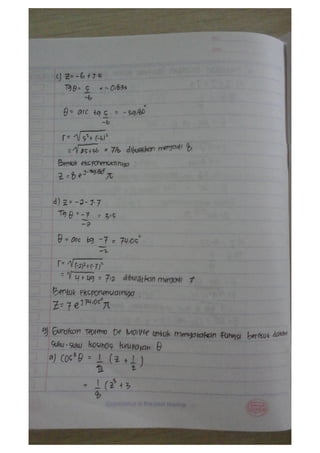 c) Z = -6 + j.5
Tg θ = 5/-6 = -0.833
θ = arc tg 5/-6 = -39.80°
r = √5²+(-6)²
= √25+36 = 7.8 dibulatkan menjadi 8
Bentuk eksponensialnya
Z = 8 e^j-39.80° π
d) Z = -2 - j.7
Tg θ = -7/-2 = 3.5
θ = arc tg -7/-2 = 74.05°
r = √(-2)²+(-7)²
= √4+49 = 7.2 dibulatkan menjadi 7
Bentuk eksponensialnya
Z = 7 e^j74.05° π
Gunakan Teorema De Moivre untuk mengatakan fungsi berikut dalam
suku-suku kosinus kelipatan θ
a) cos³ θ = 1/2 (z + 1/z)
= 1/8 (z³ + 3